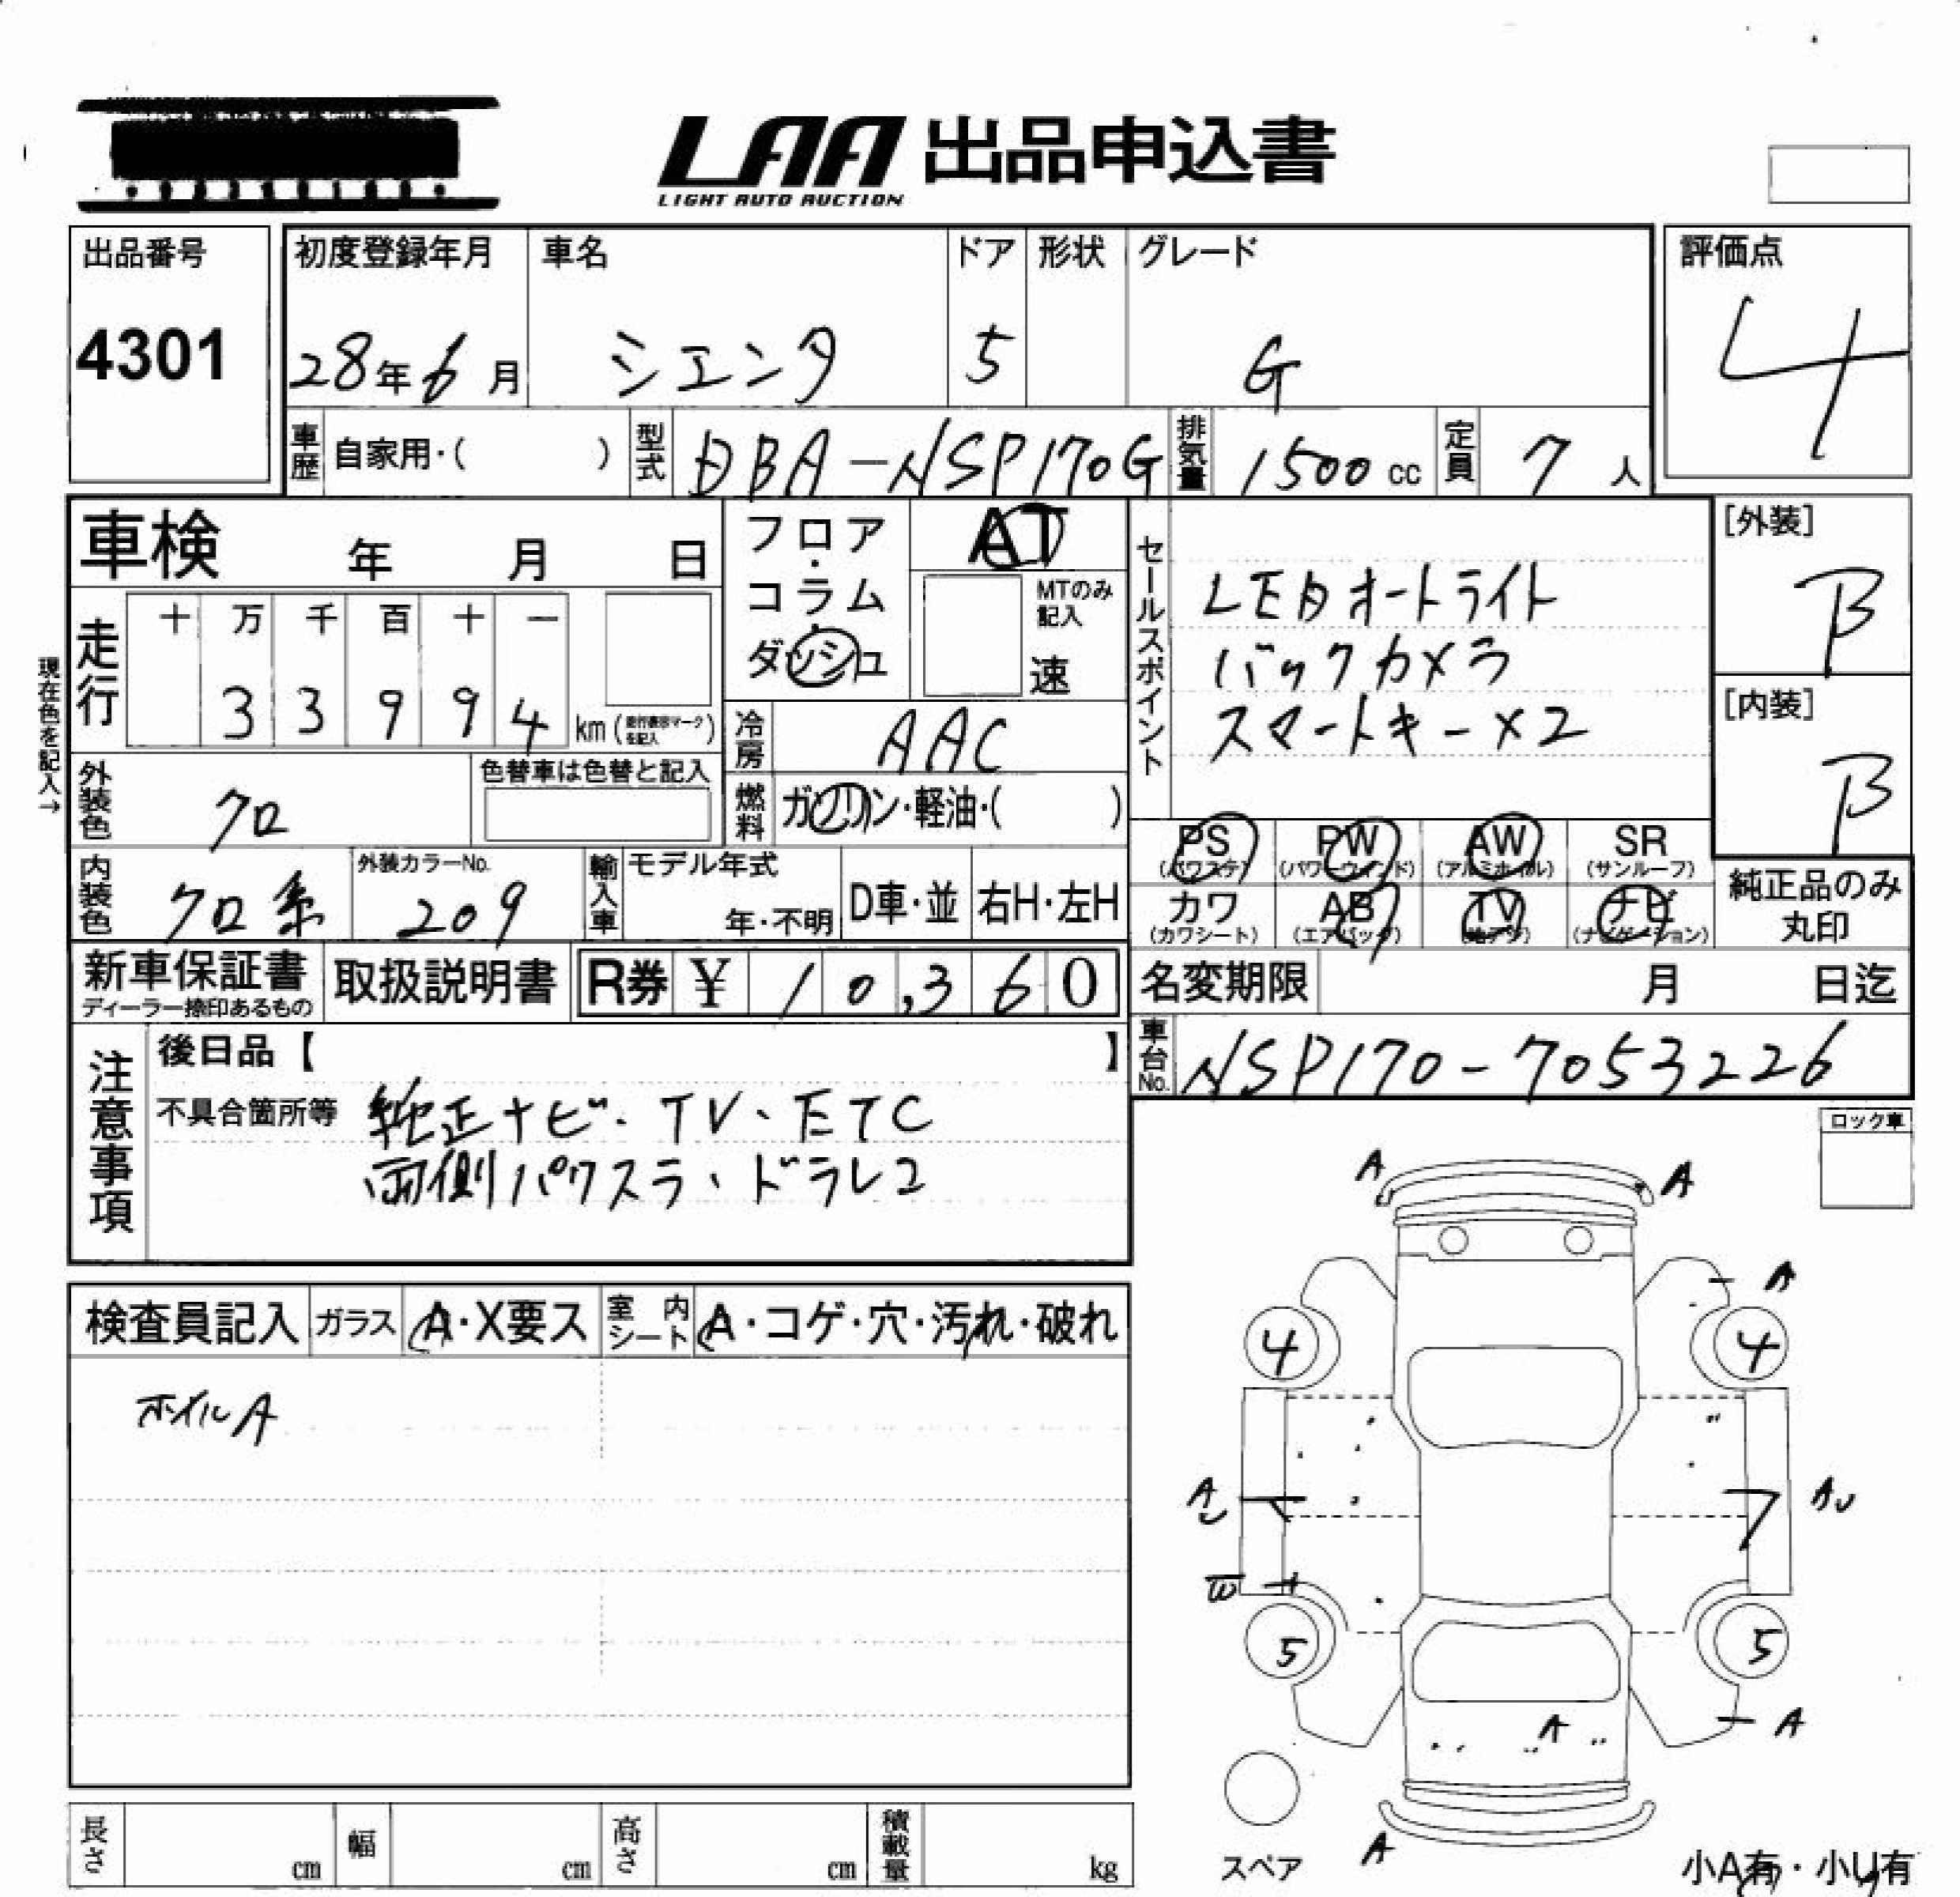 LAA 出品申込書
LIGHT AUTO AUCTION
出品番号
4301
初度登録年月
28年6月
車名
シエンタ
ドア
5
形状
グレード
G
評価点
4
車歴 自家用・( )
型式 DBA-NSP170G
排気量 1500 cc
定員 7 人
車検 年 月 日
フロア・コラム・ダッシュ
AT
MTのみ記入
速
セールスポイント
LEDオートライト
バックカメラ
スマートキー×2
[外装]
B
[内装]
B
現在色を記入→
走行
十 万 千 百 十 一
3 3 9 9 4 km (走行表示マークを記入)
冷房 AAC
燃料 ガソリン・軽油・( )
外装色 クロ
色替車は色替と記入
内装色 クロ系
外装カラーNo.
209
輸入車 モデル年式
年・不明
D車・並
右H・左H
PS (パワステ)
PW (パワーウインド)
AW (アルミホイル)
SR (サンルーフ)
カワ (カワシート)
AB (エアバック)
TV (地デジ)
ナビ (ナビゲーション)
純正品のみ
丸印
新車保証書
ディーラー捺印あるもの
取扱説明書
R券 ¥ 10,360
名変期限 月 日迄
車台No. NSP170-7053226
注意事項
後日品【 】
不具合箇所等 純正ナビ・TV・ETC
両側パワスラ、ドラレコ
ロック車
検査員記入
ガラス A・X要ス
室内シート A・コゲ・穴・汚れ・破れ
ホイルA
A A
A
4 4
A U AU
W
5 5
A
A
A
スペア
小A有・小U有
長さ cm
幅 cm
高さ cm
積載量 kg